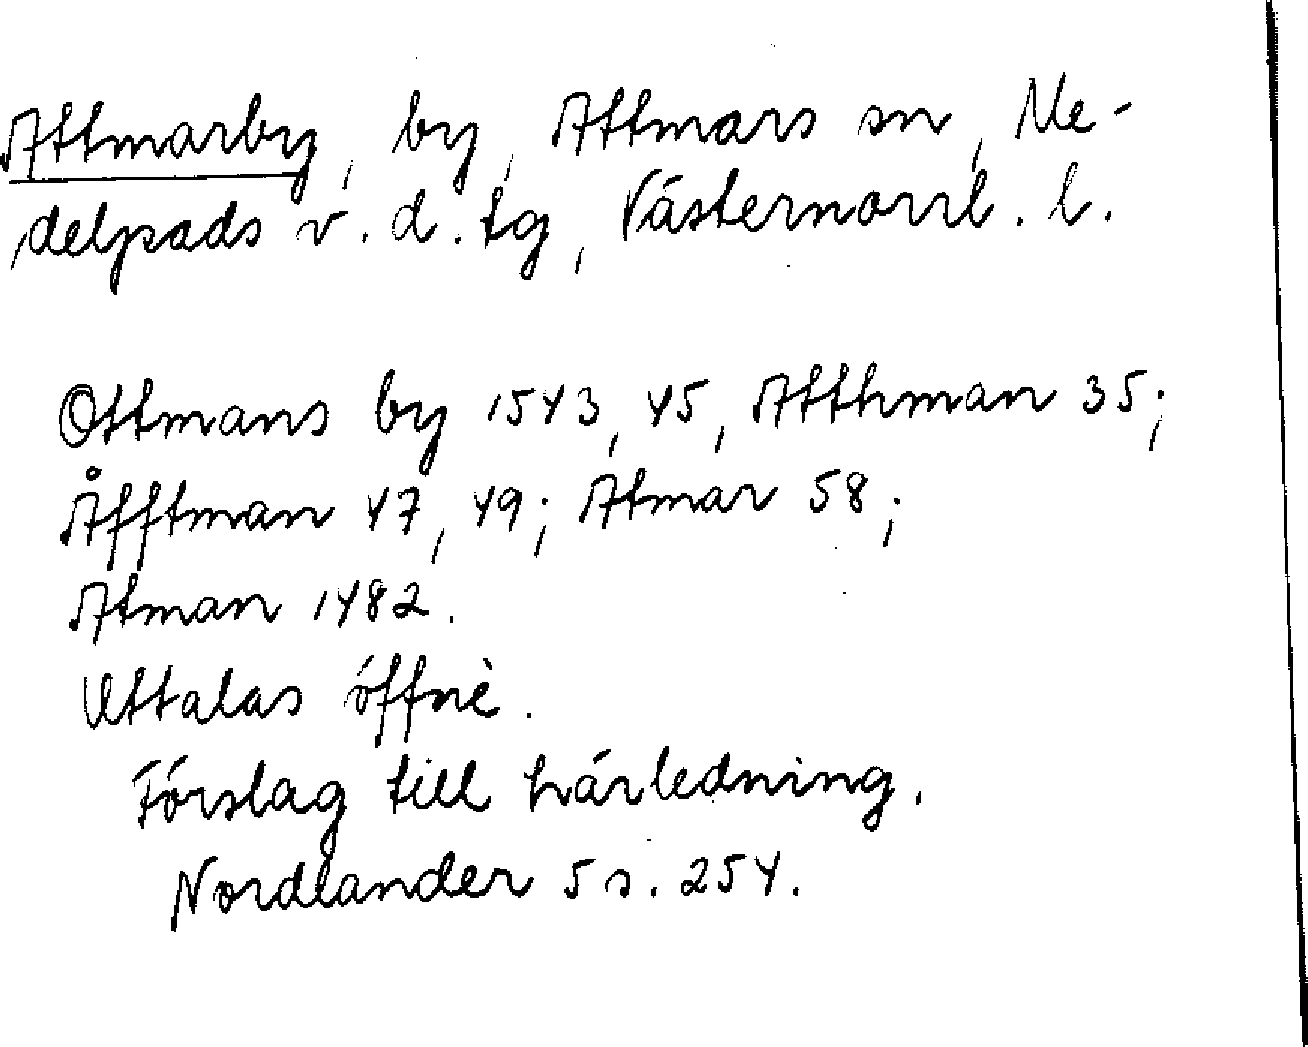 Attmarby, by, Attmars sn, Me-
delpads v. d. tg, Västernorrl. l.
Ottmans by 1543, 45, Atthman 35;
Åfftman 47, 49; Atmar 58;
Atman 1482.
Uttalas öffnè.
Förslag till härledning.
Nordlander 5 s. 254.